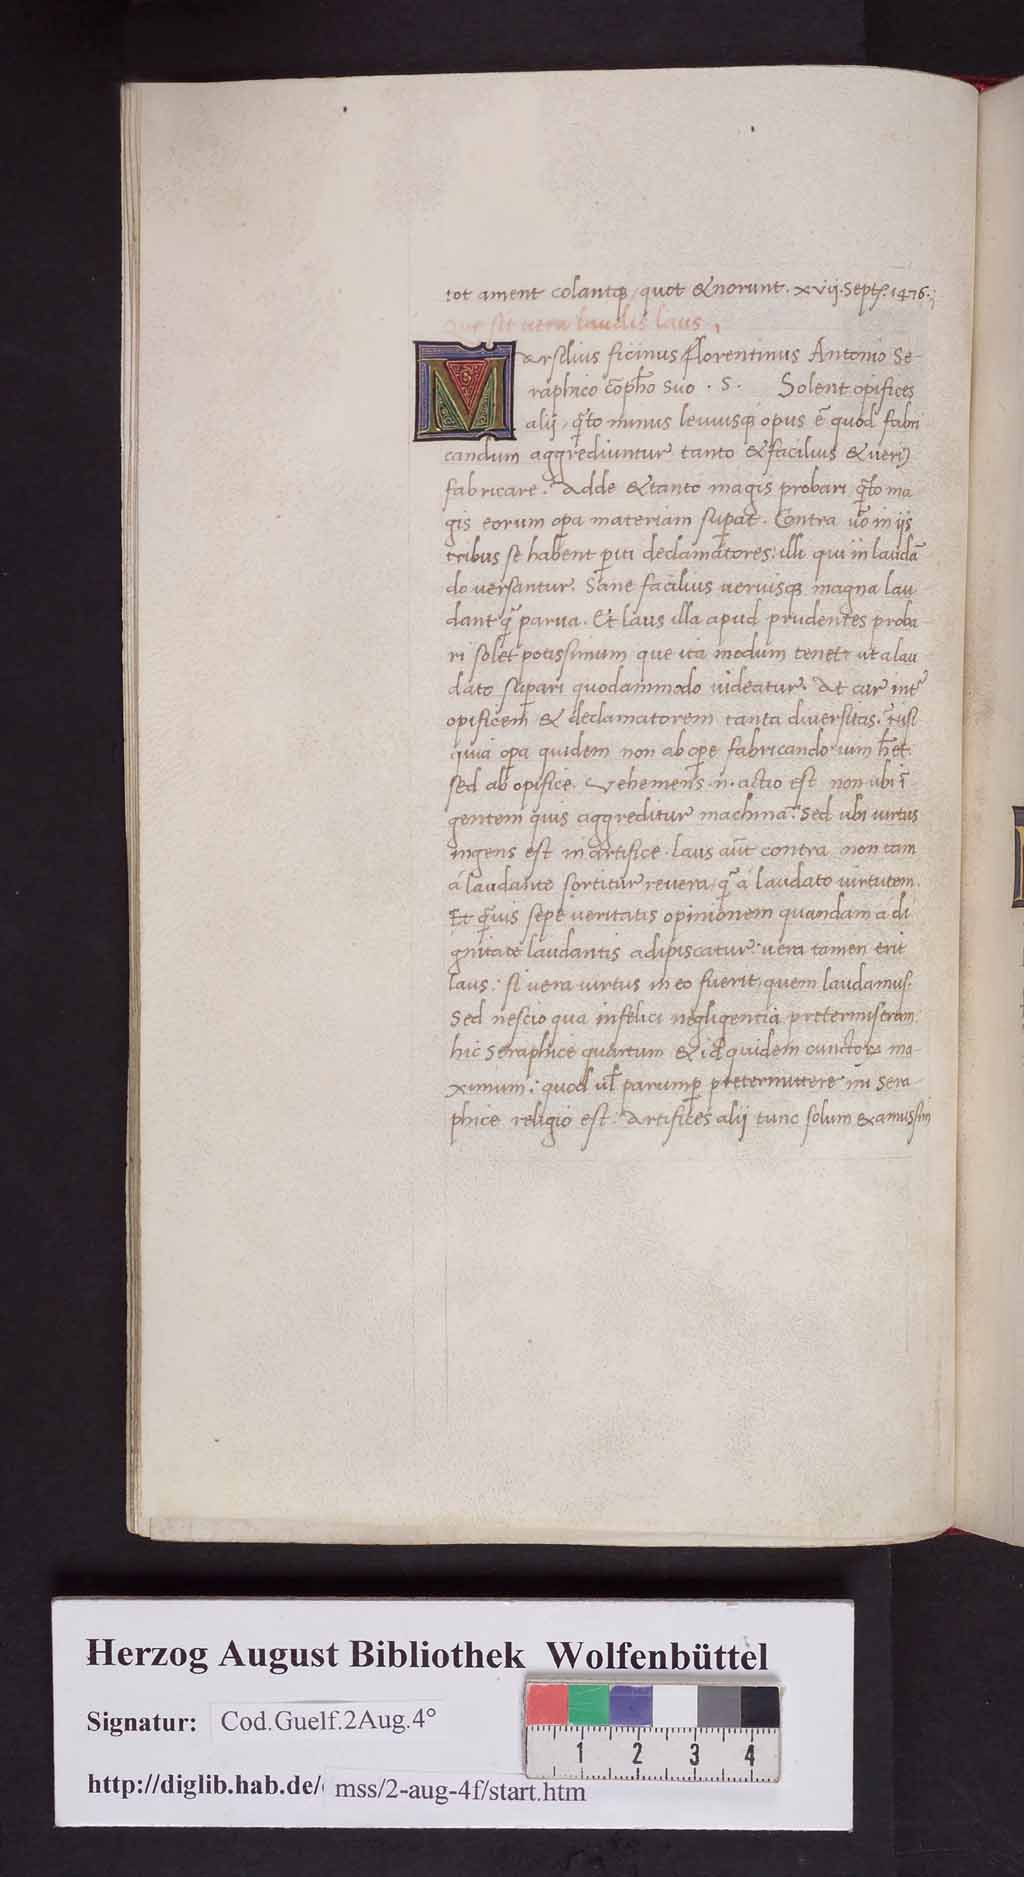 tot ament colantq, quot & norunt. xvij. Septē. 1476.
Que sit uera laudis laus.
Marsilius ficinus florentinus Antonio Se-
raphico cōph̄o suo . S . Solent opifices
alij, q̄to minus leuiusq̧ opus ē quod fabri
candum aggrediuntur tanto & facilius & ueri⁹
fabricare. Adde & tanto magis probari q̄to ma
gis eorum opa materiam supat. Contra uō in ijs
tribus se habent piti declamatores: illi qui in laudā
do uersantur. Sane facilius ueriusq̧ magna lau
dant q̄ parua. Et laus illa apud prudentes proba
ri solet potissimum que ita modum tenet: ut a lau
dato supari quodammodo uideatur. At cur int̄
opificem & declamatorem tanta diuersitas.
quia opa quidem non ab ope fabricando uim h̄et
sed ab opifice. Vehemens .n. actio est non ubi ī-
gentem quis aggreditur machinā. Sed ubi uirtus
ingens est in artifice. laus aūt contra non tam
a laudante sortitur reuera, q̄ a laudato uirtutem.
Et q̄uis sepe ueritatis opinionem quandam a di
gnitate laudantis adipiscatur: uera tamen erit
laus: si uera uirtus in eo fuerit, quem laudamus.
Sed nescio qua infelici negligentia pretermiseram
hic Seraphice quartum & id quidem cunctoꝝ ma-
ximum: quod ul̄ parump pretermittere mi Sera-
phice religio est. Artifices alij tunc solum examussim
Herzog August Bibliothek Wolfenbüttel
Signatur: Cod.Guelf.2Aug.4°
http://diglib.hab.de/ mss/2-aug-4f/start.htm
1 2 3 4